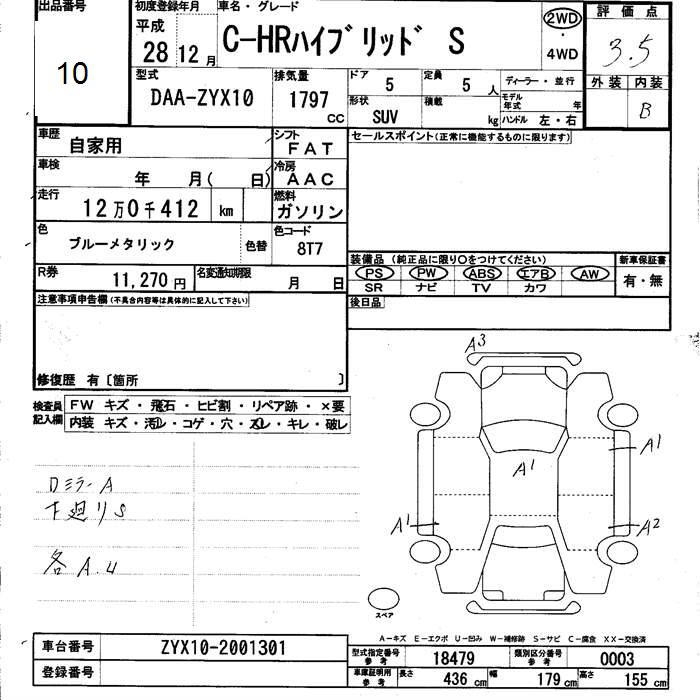 出品番号
10
初度登録年月
平成
28 12 月
車名・グレード
C-HRハイブリッド S
2WD
・
4WD
評価点
3.5
外装 内装
B
型式
DAA-ZYX10
排気量
1797
CC
ドア
5
定員
5 人
形状
SUV
積載
kg
ディーラー・並行
モデル年式 年
ハンドル 左・右
車歴
自家用
シフト
FAT
車検
年 月( 日)
冷房
AAC
走行
12万0千412 km
燃料
ガソリン
色
ブルーメタリック
色替
色コード
8T7
R券
11,270 円
名変通知期限
月 日
セールスポイント(正常に機能するものに限ります)
装備品 (純正品に限り〇をつけてください)
PS PW ABS エアB AW
SR ナビ TV カワ
新車保証書
有・無
後日品
注意事項申告欄(不具合内容等は具体的に記入して下さい)
修復歴 有〔箇所 〕
検査員記入欄
FW キズ・飛石・ヒビ割・リペア跡・×要
内装 キズ・汚レ・コゲ・穴・ズレ・キレ・破レ
ロミラーA
下廻りS
各A.U
A3
A1
A1
A1
A2
スペア
A-キズ E-エクボ U-凹み W-補修跡 S-サビ C-腐食 XX-交換済
車台番号
ZYX10-2001301
登録番号
型式指定番号
参考
18479
類別区分番号
参考
0003
車庫証明用
参考
長さ
436 cm
幅
179 cm
高さ
155 cm